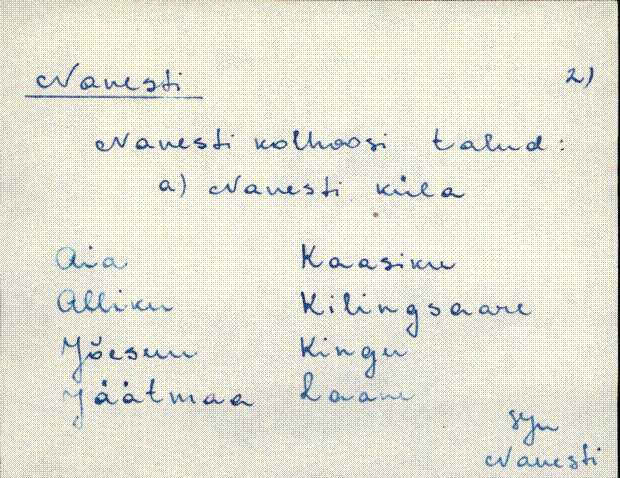 Navesti 2)
Navesti kolhoosi talud:
a) Navesti küla
Aia Kaasiku
Alliku Kilingsaare
Jõesuu Kingu
Jäätmaa Laane
Navesti